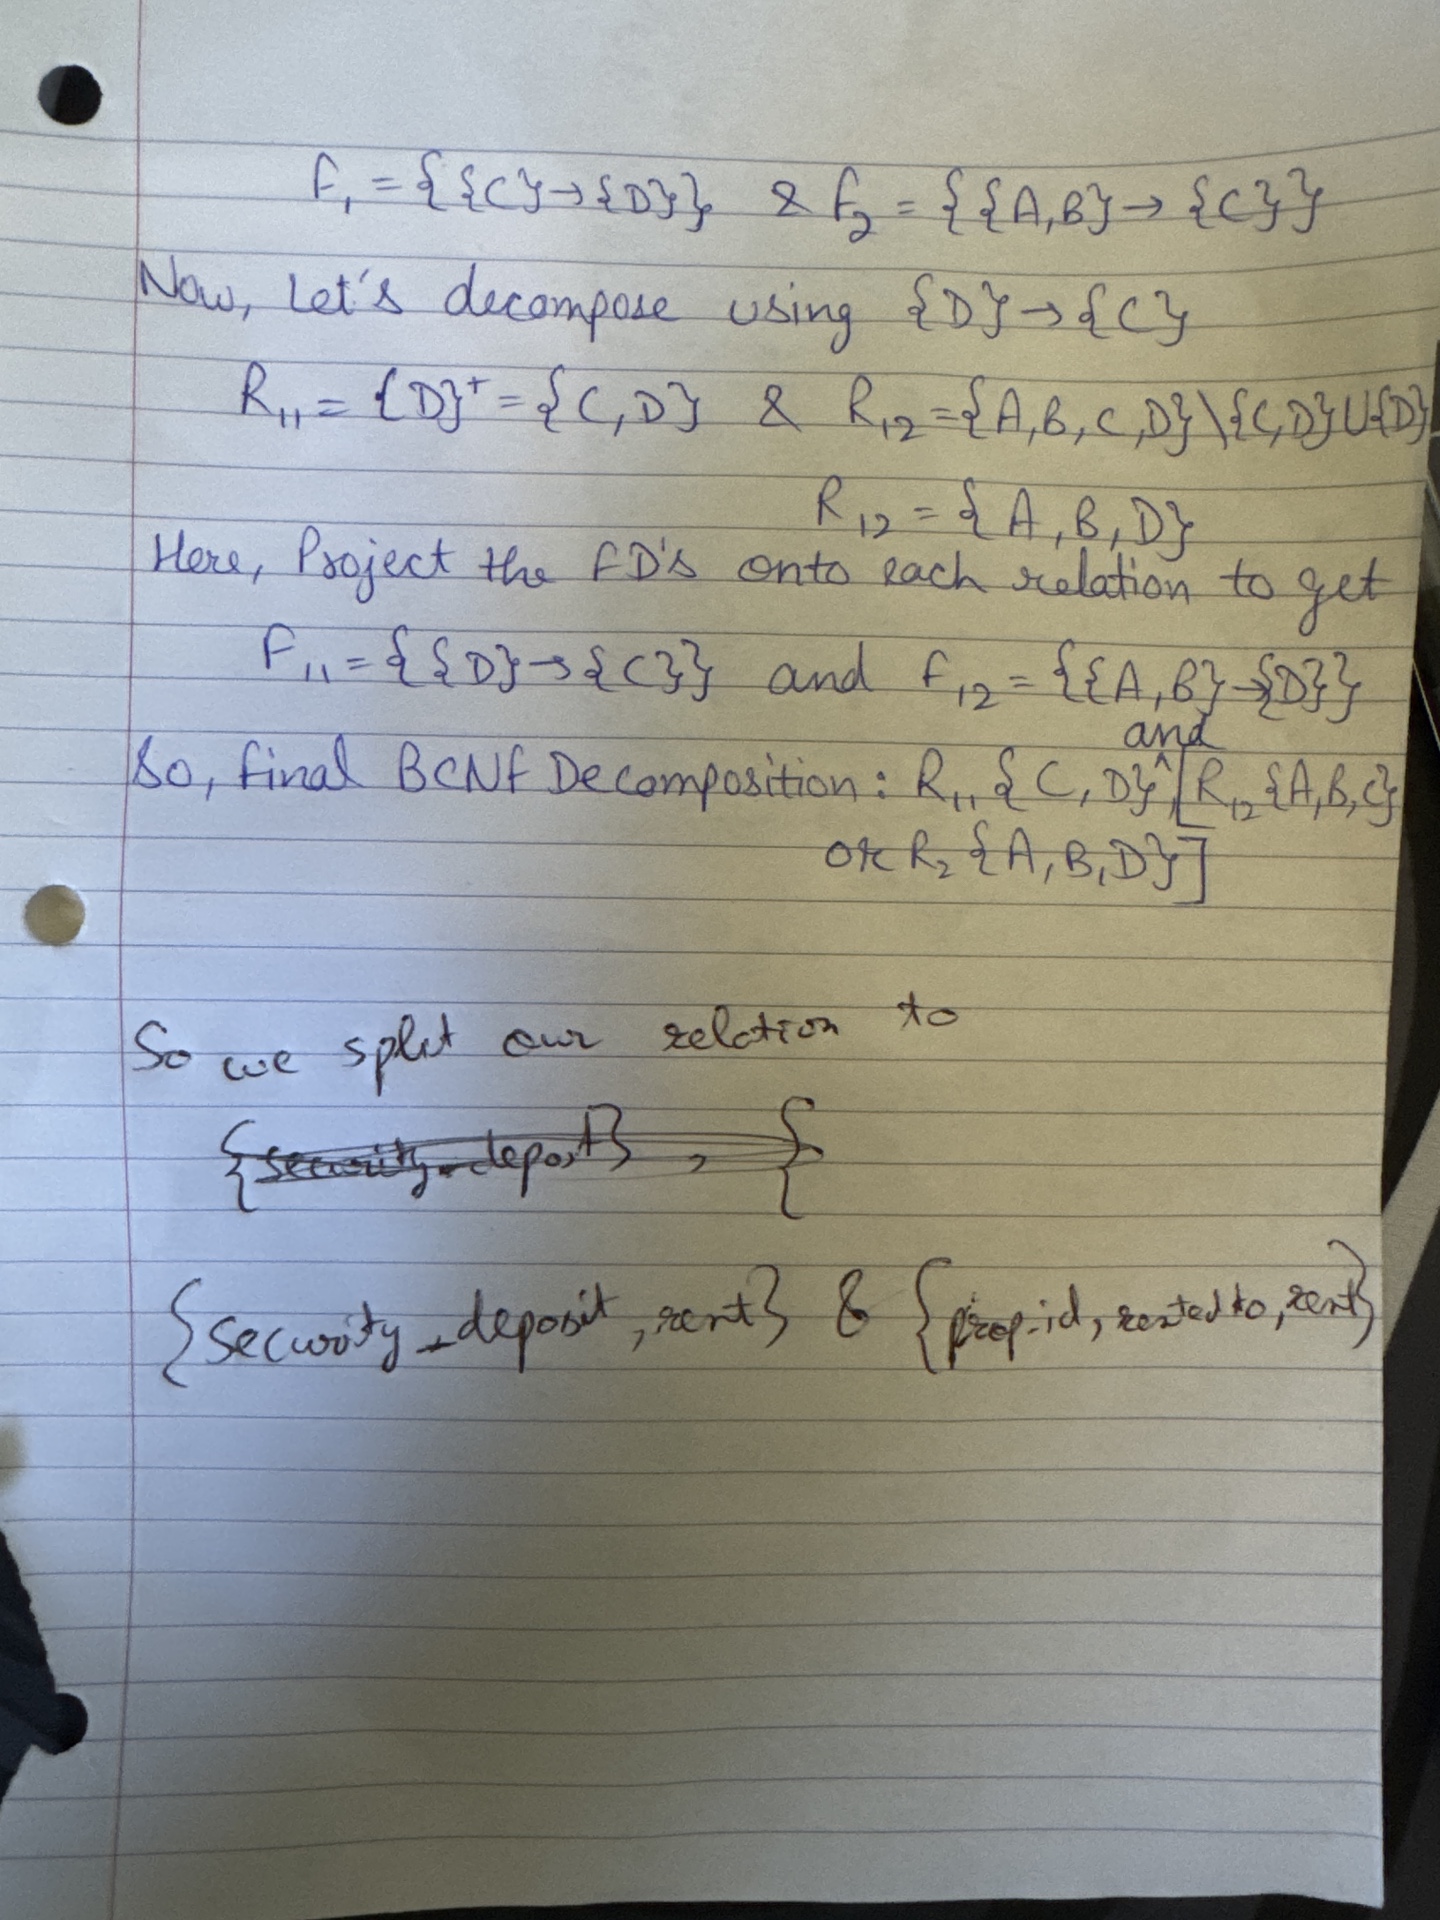 F₁ = {{C}→{D}} & F₂ = {{A,B}→{C}}
Now, Let's decompose using {D}→{C}
R₁₁ = {D}⁺ = {C,D} & R₁₂ = {A,B,C,D}\{C,D}U{D}
R₁₂ = {A,B,D}
Here, Project the FD's onto each relation to get
F₁₁ = {{D}→{C}} and F₁₂ = {{A,B}→{D}}
and
So, final BCNF Decomposition: R₁₁{C,D}^[R₁₂{A,B,C}
or R₂{A,B,D}]
So we split our relation to
{security_deposit}, {
{security_deposit, rent} & {prop-id, rented to, rent}